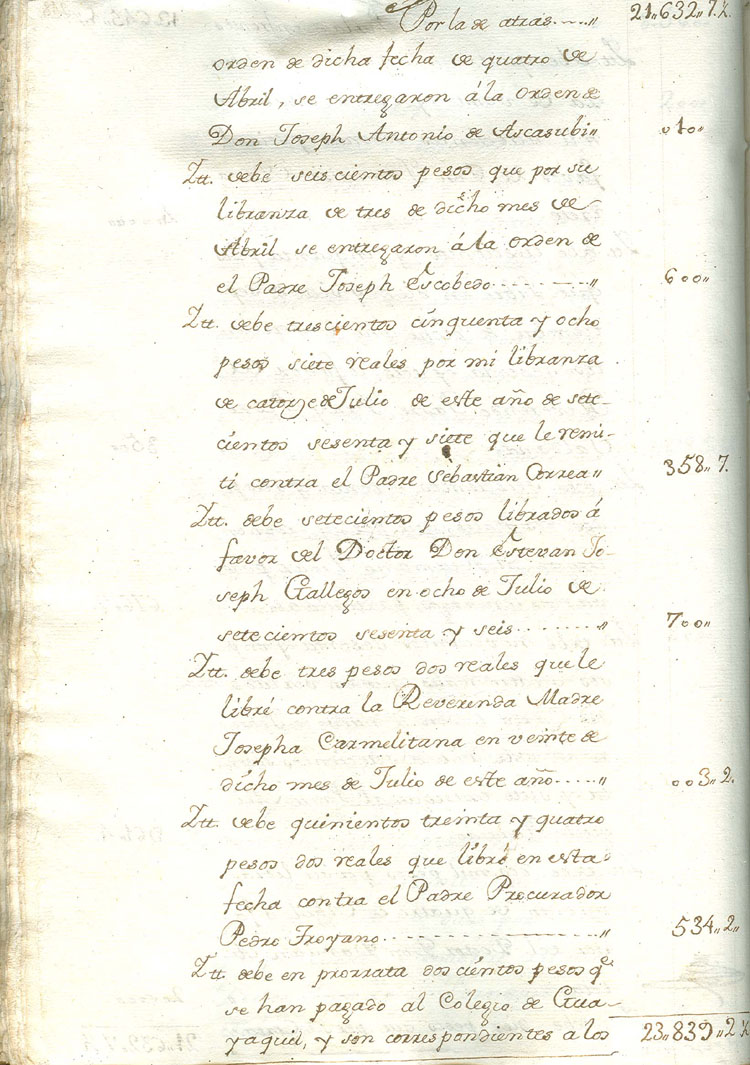 Por la de atras.....,, 21,,632,,7.½.
orden de dicha fecha de quatro de
Abril, se entregaron á la orden de
Don Joseph Antonio de Ascasubi,, 010,,
Ytt. debe seiscientos pesos que por su
libranza de tres de dicho mes de
Abril se entregaron á la orden de
el Padre Joseph Escobedo..........,, 600,,
Ytt. debe trescientos cinquenta y ocho
pesos siete reales por mi libranza
de catorze de Julio de este año de sete-
cientos sesenta y siete que le remi-
ti contra el Padre Sebastian Correa,, 358,,7.
Ytt. debe setecientos pesos librados á
favor del Doctor Don Estevan Jo-
seph Gallegos en ocho de Julio de
setecientos sesenta y seis.........,, 700,,
Ytt. debe tres pesos dos reales que le
libré contra la Reverenda Madre
Josepha Carmelitana en veinte de
dicho mes de Julio de este año.....,, 003,,2.
Ytt. debe quinientos treinta y quatro
pesos dos reales que libré en esta
fecha contra el Padre Procurador
Pedro Troyano..........,, 534,,2,,
Ytt. debe en prorrata dos cientos pesos qe.
se han pagado al Colegio de Gua-
yaquil, y son correspondientes a los 23,,839,,2½